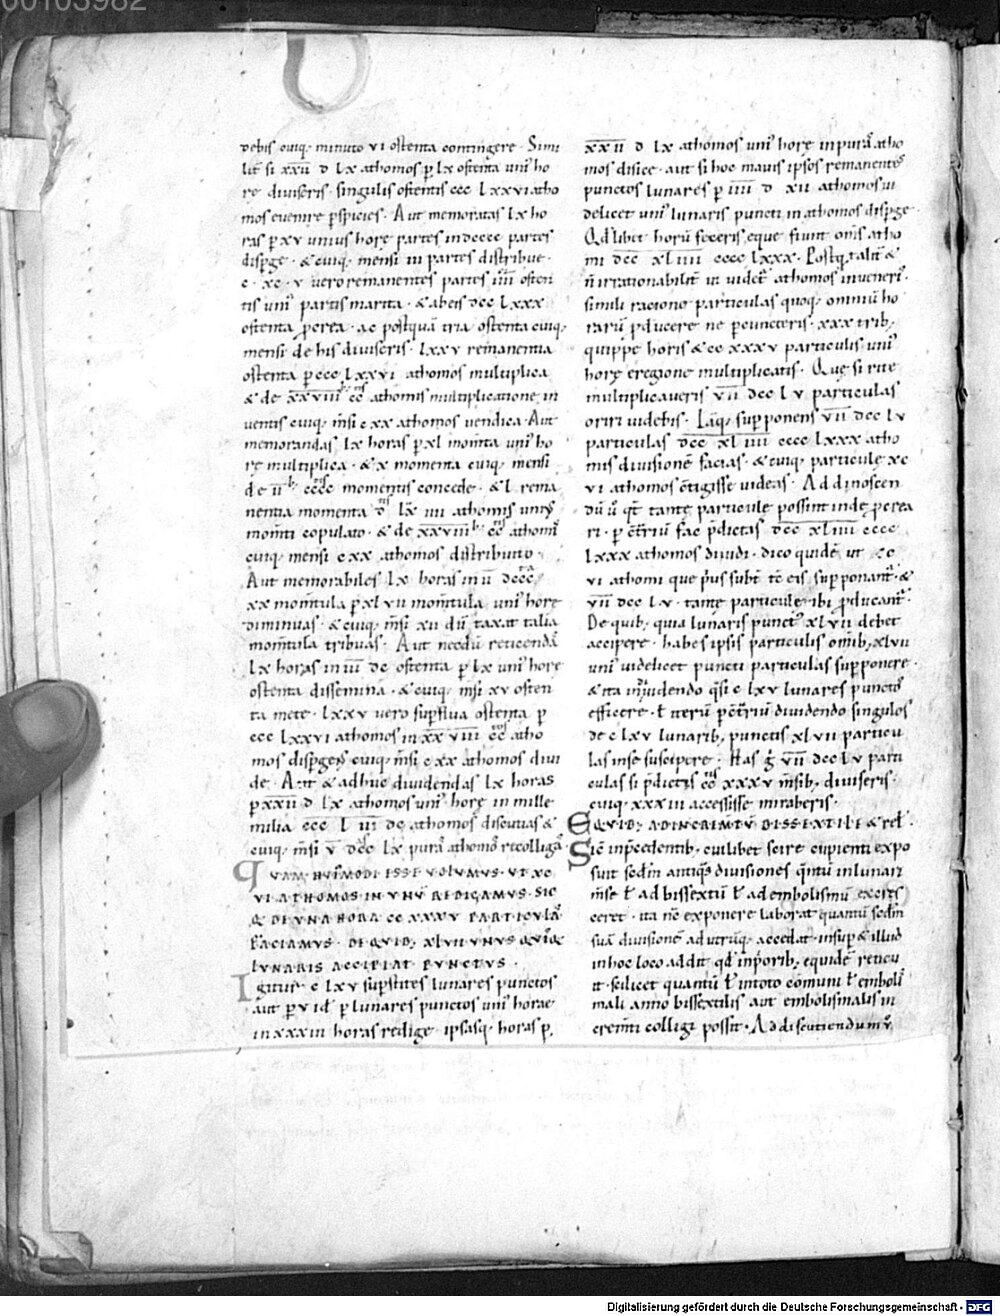 00103982
debis cuiq; minuto vi ostenta contingere · Simi
lit̄ si xxii d lx athomos p̱ lx ostenta uni᾽ ho
re diuiseris · singulis ostentis ccc lxxvi atho
mos euenire ꝑspicies · Aut memoratas lx ho
ras ꝑ xv unius horę partes in dcccc partes
disꝑge · & cuiq; mensi in partes distribue ·
c · xc · v vero remanentes partes osten
tis uni᾽ partis marita · & abeis dcc lxxx
ostenta ꝑcrea · ac postquā tria ostenta cuiq;
mensi de his diuiseris · lxxv remanentia
ostenta ꝑ ccc lxxvi athomos multiplica
& de xxviii cc athomis multiplicatione in
uentis cuiq; m̄si c xx athomos uendica · Aut
memorandas lx horas ꝑ xl mom̄ta uni᾽ ho
rę multiplica · & x momenta cuiq; mensi
de ii cccc momentis concede · & l rema
nentia momenta d lx iiii athomis uni᾽
mom̄ti copulato · & de xxviii cc athom̄
cuiq; mensi c xx athomos distributo ·
Aut memorabiles lx horas in ii dccc
xx mom̄tula ꝑ xl vii mom̄tula uni᾽ horę
diminuas · & cuiq; m̄si xii dū taxat talia
mom̄tula tribuas · Aut necdū reticendā
lx horas in iii dc ostenta ꝑ lx uni᾽ horę
ostenta dissemina · & cuiq; m̄si xv osten
ta mete · lxxv vero supflua ostenta ꝑ
ccc lxxvi athomos in xxviii cc atho
mos disꝑgens cuiq; m̄si c xx athomos diui
de · Aut & adhuc diuidendas lx horas
ꝑ xxii d lx athomos uni᾽ horę in mille
milia ccc l iii dc athomos discutias &
cuiq; m̄si v dcc lx purā athomoꝝ recolligā
QVAM HVI᾽MODI ESSE VOLVMVS · VT XC
VI ATHOMOS IN VNV̄ REDIGAMVS · SIC
& DE VNA HORA CC XXXV PARTICVLĀ
FACIAMVS · DE QVIB; XLVII VNVS QVIQ;
LVNARIS ACCIPIAT PVNCTVS ·
Igitur c lxv supstites lunares punctos
aut ꝑ v id ꝑ lunares punctos uni᾽ horae
in xxxiii horas redige · ipsasq; horas ꝑ
xxii d lx athomos uni᾽ horę in purā atho
mos disice · aut si hoc mauis ipsos remanentes
punctos lunares ꝑ iiii d xii athomos ui
delicet uni᾽ lunaris puncti in athomos disꝑge ·
Qd̄libet horū feceris, eque fiunt om̄s atho
mi dcc xl iiii cccc lxxx · Postq; talit̄ &
n̄ irrationabilit̄ ut videt᾽ athomos inueneri᾽
simili racione particulas quoq; omniū ho
rarū ꝓducere ne ꝑcuncteris · xxx trib;
quippe horis & cc xxxv particulis uni᾽
horę e regione multiplicatis · Quę si rite
multiplicaueris vii dcc lv particulas
oriri uidebis · Itaq; supponens vii dcc lv
particulas dcc xl iiii cccc lxxx atho
mis diuisionē facias · & cuiq; particulę xc
vi athomos c̄tigisse uideas · Ad dinoscen
dū u̓ qt̄ tantę particulę possint inde ꝓcrea
ri · ꝑ c̄triū fac p̄dictas dcc xl iiii cccc
lxxx athomos diuidi · dico quidē ut xc
vi athomi que pus subt̄ tē eis supponant᾽ · &
vii dcc lv · tantę particulę ibi ꝓducant᾽ ·
De quib; quia lunaris punct᾽ xl vii debet
accipere · habes ipsis particulis om̄ib; xl vii
uni᾽ videlicet puncti particulas supponere ·
& ita diuidendo q̄si c lxv lunares punctos
efficere · t̄ iterū ꝑ c̄triū diuidendo singulos
de c lxv lunarib; punctis xl vii particu
las in se suscipere · Has g̓ vii dcc lv parti
culas si p̄dictis cc xxxv m̄sib; diuiseris ·
cuiq; xxxiii accessisse miraberis ·
E QVID; AD INCREM̄TV̄ BISSEXTILE & rel̄
Sic in p̄cedentib; cuilibet scire cupienti expo
sui sedm antiq᾽s diuisiones q̄ntū in lunari
m̄se t̄ ad bissextū t̄ ad embolismū excres
ceret · ita nc̄ exponere laborat quantū sedm
suā diuisionē ad utrūq; accedat · insup & illud
in hoc loco addit qd̄ in p̓orib; equidē reticu
it · scilicet quantū t̄ in toto cōmuni t̄ emboli
mali anno bissextilis aut embolismalis in
crem̄ti colligi possit · Ad discutiendum u̓
Digitalisierung gefördert durch die Deutsche Forschungsgemeinschaft - DFG